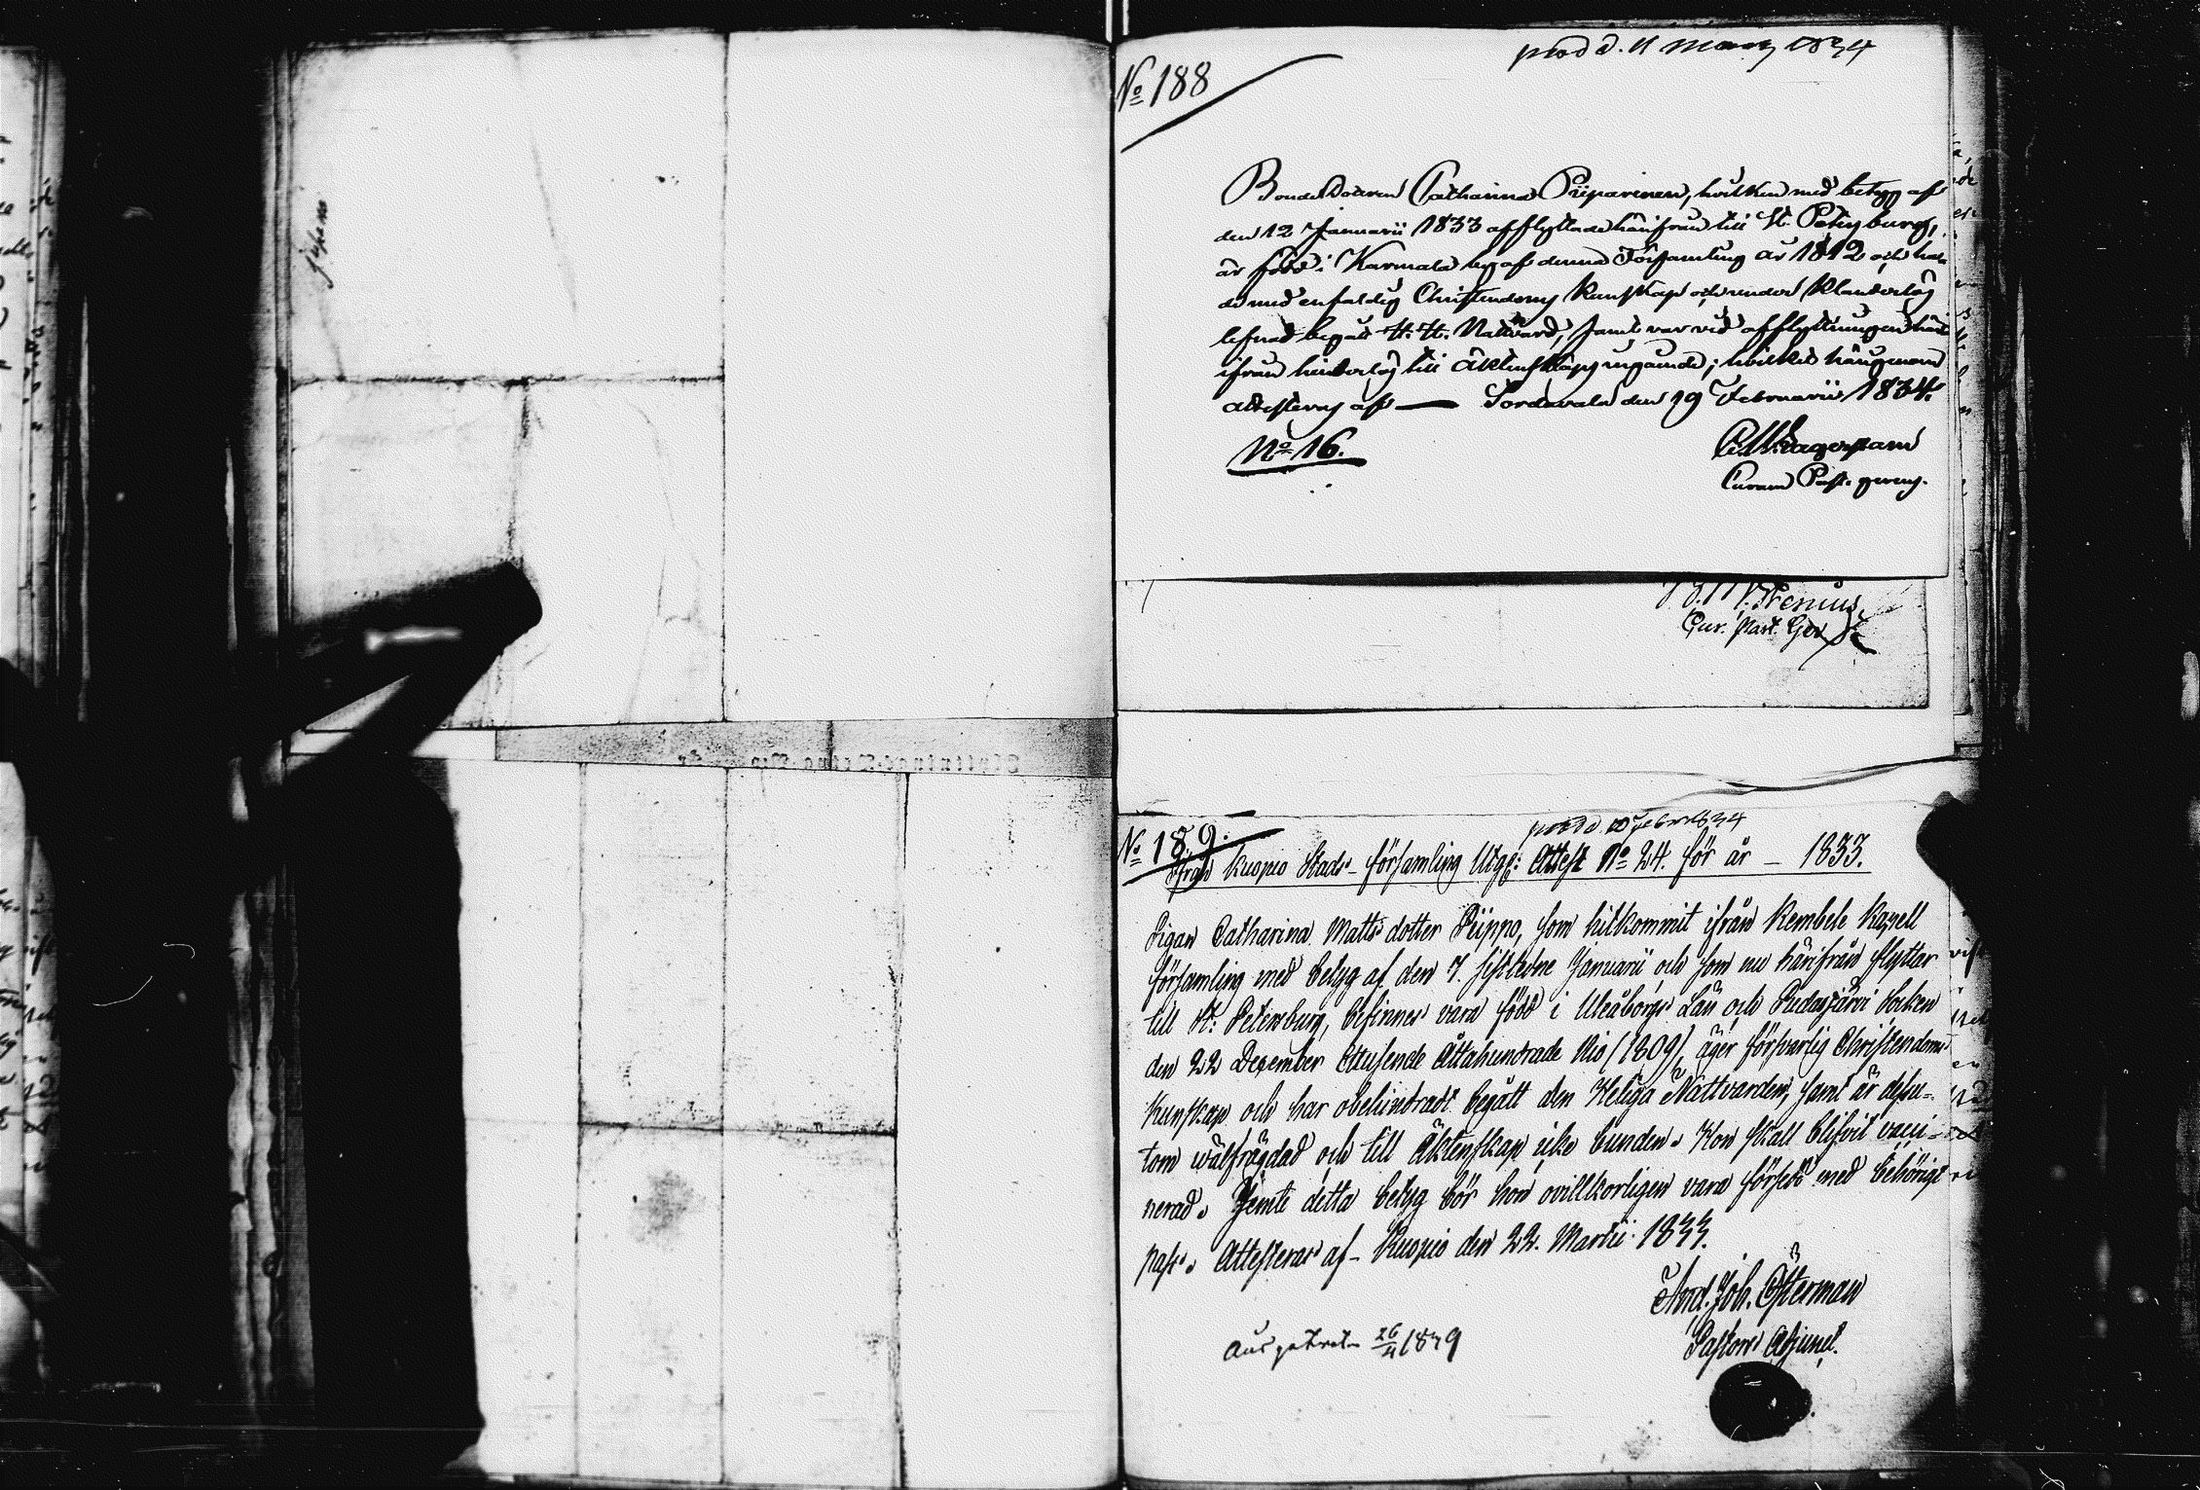 jesen
Flyttnings-Betyg No för
prod d. 11 Mars 1834
No 188
Bonde Dottren Catharina Piiparinen, hvilken med betyg af
den 12 Januarii 1833 afflyttade härifrån till St. Petersburg,
är född i Karmala by af denna Församling år 1812 och ha-
de med enfaldig Christendoms kunskap och under klanderlös
lefnad begått H. H. Nattvard, samt var vid afflyttningen här
ifrån hinderlös till äktenskaps ingående; hvilket härigenom
attesteras af — Sordavala den 19 Februarii 1834.
No 16.
Curam Past. gerens.
Cur. Past. Ger
No 189.
prod d. 10 Febr 1834
Ifrån Kuopio Stads-församling Utgif: Attest No 24. för år – 1833.
Pigan Catharina Matts dotter Piippo, som hitkommit ifrån Kembele Kapell
församling med betyg af den 7. sistledne Januarii och som nu härifrån flyttar
till St: Petersburg, befinnes vara född i Uleåborgs Län och Pudasjärvi Socken
den 22 December Ettusende Åttahundrade Nio (1809), äger försvarlig Christendoms
kunskap och har obehindradt begått den Heliga Nattvarden, samt är dessu-
tom wälfrägdad och till Äktenskap icke bunden. Hon skall blifvit vacci-
nerad. Jemte detta betyg bör hon ovillkorligen vara försedd med behörigt
pass. Attesteras af – Kuopio den 22. Martii 1833.
And. Joh. Österman
Pastors Adjunct.
Ausgetreten 26/11 1839